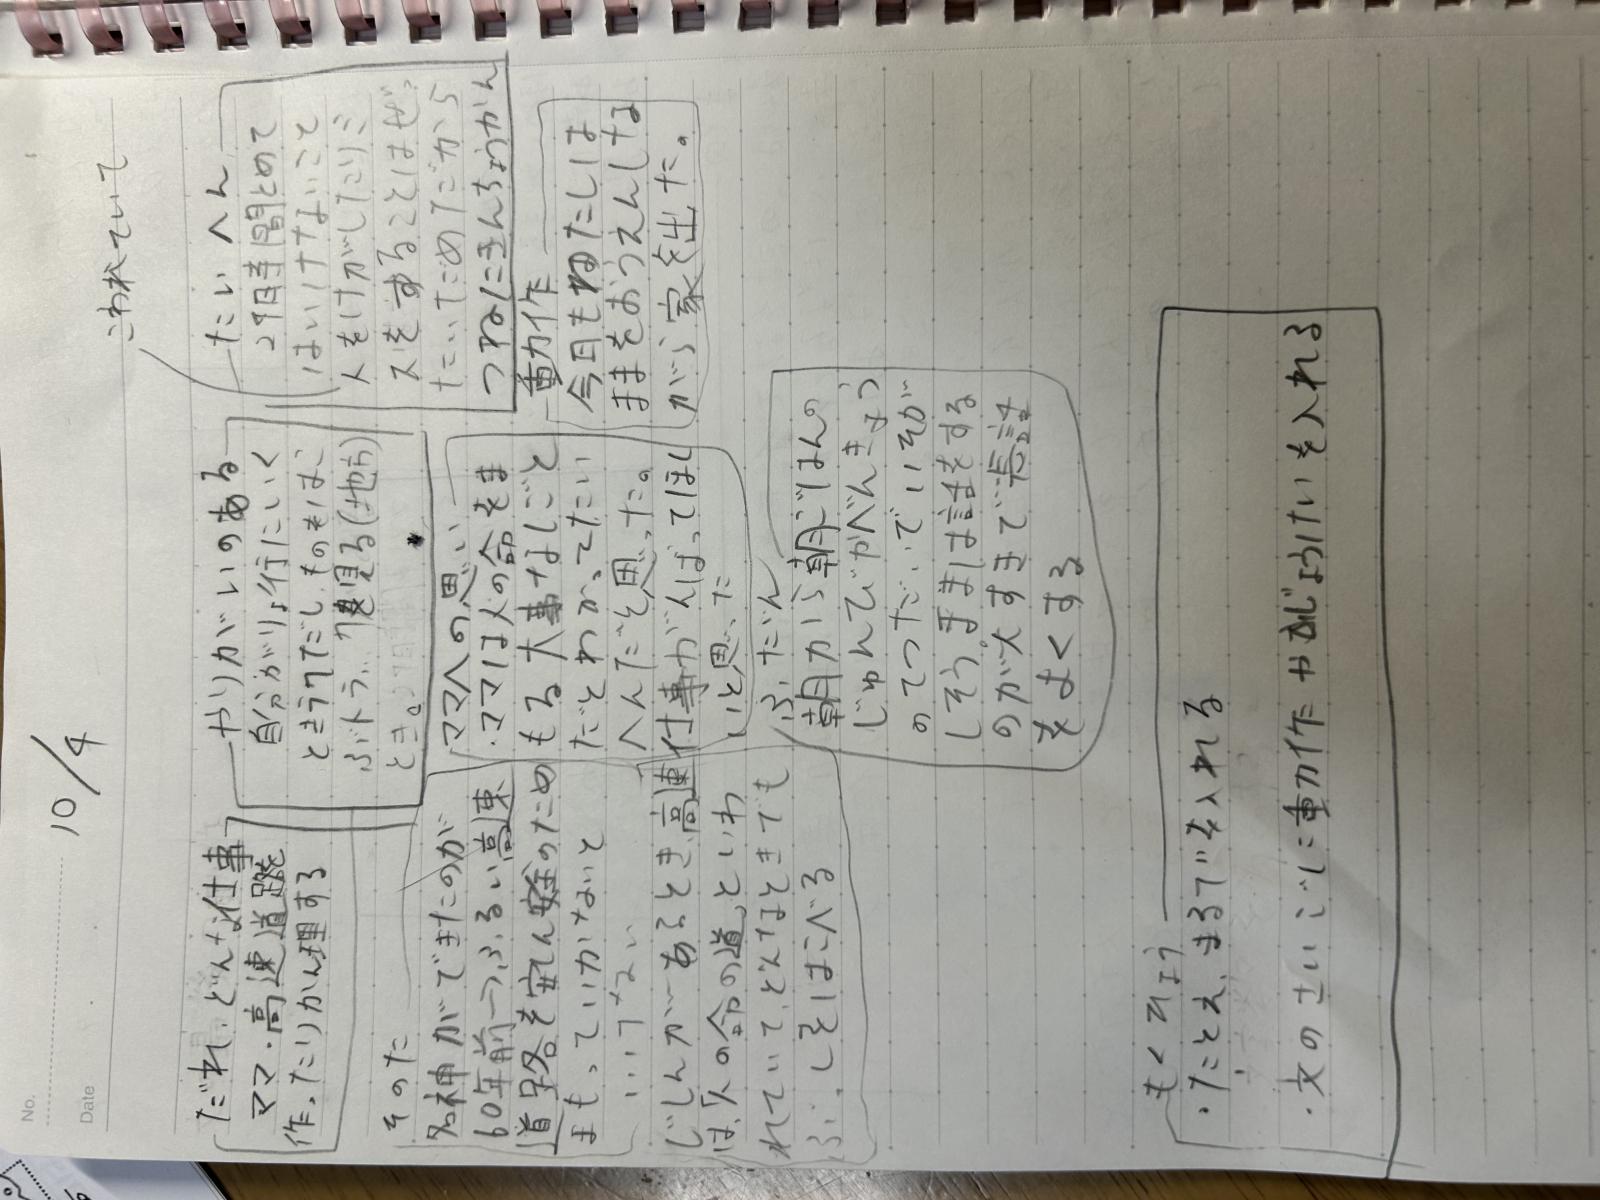 No.
Date
10/4
だれ、どんな仕事
ママ・高速道路
作ったりかん理する
やりがいのある
自分がりょ行にいく
ときラクだしものもはこ
ぶトラックも見る(地方)
とき。
こわれていて
たいへん
24時間とめて
はいけないこと
人をけがしたりミ
スをすることはぜっ
たいにだめだから
つねにきんちょうかん
そのた
名神ができたのが
60年前一つふるい高速
道路を安ん全のため
まもっていかないと
いけない
じしんがあるとき、高速
は、「人の命の道」といわ
れていて、どんなときでも
ぶっしをはこべる
ママへの思い
・ママは人の命をま
もる大事なしごと
だとわかってたい
へんだと思った。
仕事がんばってほし
いと思った
動作
今日もわたしは
ままをおうえんしな
がら家を出た。
ふだん
朝から朝ごはんの
じゅんびがべんきょう
のてつだいでいそが
しそう。ままは話をする
のが大すきで長話
をよくする
もくひょう
・たとえ、まるでを入れる
・文のさいごに動作やかいじょうけいを入れる